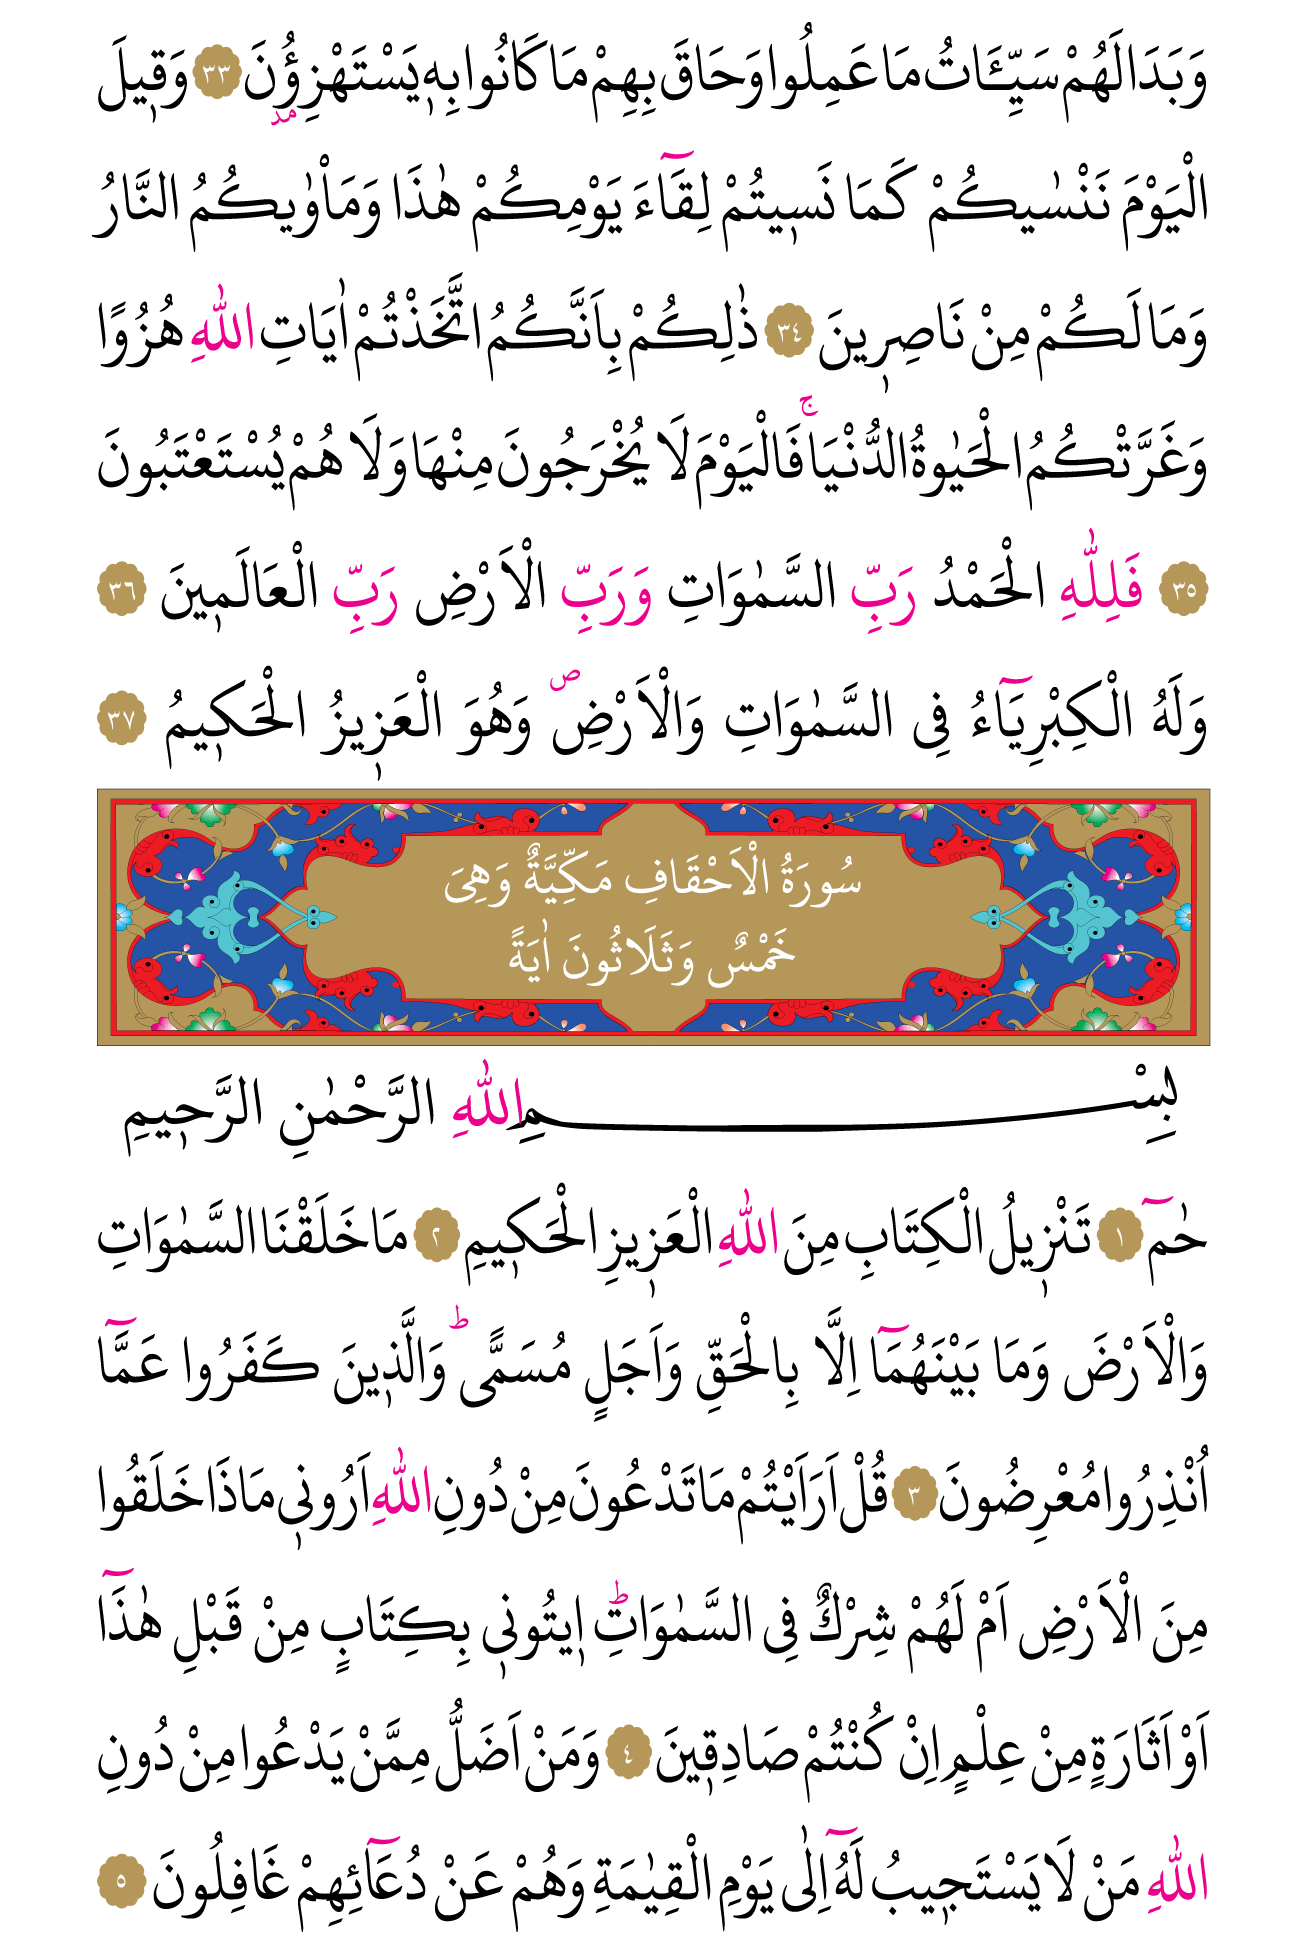 وَبَدَا لَهُمْ سَيِّـَٔاتُ مَا عَمِلُوا وَحَاقَ بِهِمْ مَا كَانُوا بِه۪ يَسْتَهْزِؤُ۫نَ ﴿٣٣﴾ وَق۪يلَ
الْيَوْمَ نَنْسٰيكُمْ كَمَا نَس۪يتُمْ لِقَٓاءَ يَوْمِكُمْ هٰذَا وَمَأْوٰيكُمُ النَّارُ
وَمَا لَكُمْ مِنْ نَاصِر۪ينَ ﴿٣٤﴾ ذٰلِكُمْ بِاَنَّكُمُ اتَّخَذْتُمْ اٰيَاتِ اللّٰهِ هُزُوًا
وَغَرَّتْكُمُ الْحَيٰوةُ الدُّنْيَاۚ فَالْيَوْمَ لَا يُخْرَجُونَ مِنْهَا وَلَا هُمْ يُسْتَعْتَبُونَ
﴿٣٥﴾ فَلِلّٰهِ الْحَمْدُ رَبِّ السَّمٰوَاتِ وَرَبِّ الْاَرْضِ رَبِّ الْعَالَم۪ينَ ﴿٣٦﴾
وَلَهُ الْكِبْرِيَٓاءُ فِي السَّمٰوَاتِ وَالْاَرْضِۖ وَهُوَ الْعَز۪يزُ الْحَك۪يمُ ﴿٣٧﴾
سُورَةُ الْاَحْقَافِ مَكِّيَّةٌ وَهِيَ
خَمْسٌ وَثَلَاثُونَ اٰيَةً
بِسْمِ اللّٰهِ الرَّحْمٰنِ الرَّح۪يمِ
حٰمٓ ﴿١﴾ تَنْز۪يلُ الْكِتَابِ مِنَ اللّٰهِ الْعَز۪يزِ الْحَك۪يمِ ﴿٢﴾ مَا خَلَقْنَا السَّمٰوَاتِ
وَالْاَرْضَ وَمَا بَيْنَهُمَٓا اِلَّا بِالْحَقِّ وَاَجَلٍ مُسَمًّىۜ وَالَّذ۪ينَ كَفَرُوا عَمَّٓا
اُنْذِرُوا مُعْرِضُونَ ﴿٣﴾ قُلْ اَرَاَيْتُمْ مَا تَدْعُونَ مِنْ دُونِ اللّٰهِ اَرُون۪ي مَاذَا خَلَقُوا
مِنَ الْاَرْضِ اَمْ لَهُمْ شِرْكٌ فِي السَّمٰوَاتِۜ ا۪يتُون۪ي بِكِتَابٍ مِنْ قَبْلِ هٰذَٓا
اَوْ اَثَارَةٍ مِنْ عِلْمٍ اِنْ كُنْتُمْ صَادِق۪ينَ ﴿٤﴾ وَمَنْ اَضَلُّ مِمَّنْ يَدْعُوا مِنْ دُونِ
اللّٰهِ مَنْ لَا يَسْتَج۪يبُ لَهُٓ اِلٰى يَوْمِ الْقِيٰمَةِ وَهُمْ عَنْ دُعَٓائِهِمْ غَافِلُونَ ﴿٥﴾